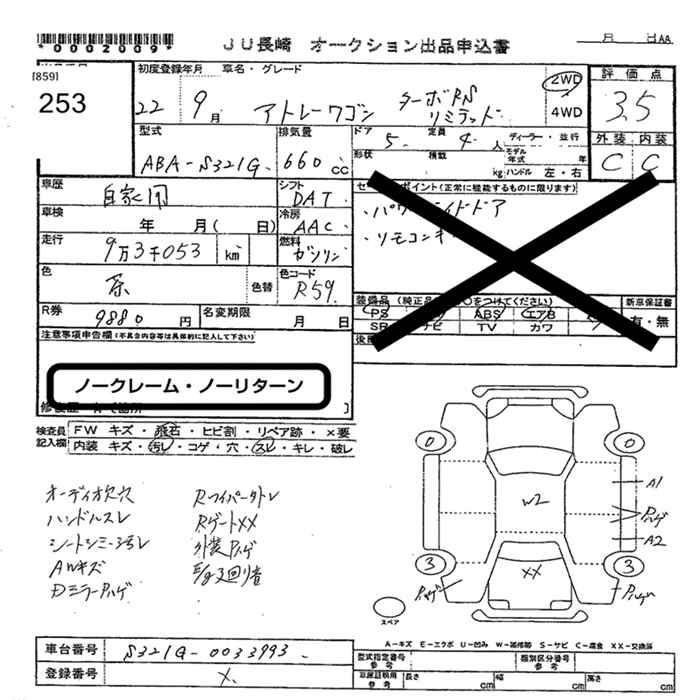 *0002009*
JU長崎 オークション出品申込書
月 日AA
[859]
253
初度登録年月 車名・グレード
22 9月 アトレーワゴン ターボRS リミテッド
2WD
4WD
評価点
3.5
外装 内装
C C
型式
ABA-S321G
排気量
660 cc
ドア 5 定員 4人 ディーラー・並行
形状 積載 kg モデル年式 年
ハンドル 左・右
車歴 自家用
シフト DAT
車検 年 月( 日)
冷房 AAC
走行 9万3千053 km
燃料 ガソリン
色 茶 色替
色コード R59
R券 9880円
名変期限 月 日
セ ポイント(正常に機能するものに限ります)
・パワ イドドア
・リモコンキ
装備品 (純正品 ○をつけてください)
新車保証書
PS ABS エアB
SR ナビ TV カワ
有・無
注意事項申告欄(不具合内容等は具体的に記入して下さい)
ノークレーム・ノーリターン
検査員記入欄
FW キズ・飛石・ヒビ割・リペア跡・×要
内装 キズ・汚レ・コゲ・穴・スレ・キレ・破レ
オーディオ欠穴
ハンドルスレ
シートシミ・3号レ
AWキズ
Dミラーハゲ
Rワイパー
RゲートXX
外装ハゲ
0
0
3
3
W2
XX
A1
ハゲ
A2
ハゲ
ハゲ
スペア
A-キズ E-エクボ U-凹み W-補修跡 S-サビ C-腐食 XX-交換済
車台番号 S321G-0033993
登録番号
型式指定番号 参考
類別区分番号 参考
車庫証明用 参考 長さ cm 幅 cm 高さ cm